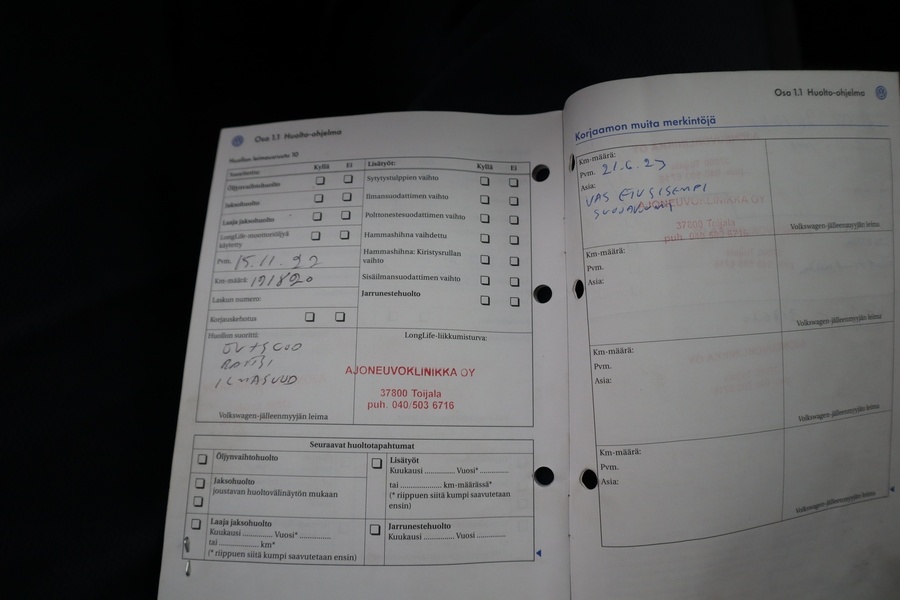 Osa 1.1 Huolto-ohjelma
Huollon leimausruutu 10
Kyllä Ei
Öljynvaihtohuolto
Jaksohuolto
Laaja jaksohuolto
LongLife-moottoriöljyä
käytetty
Pvm. 15.11.22
Km-määrä: 191820
Laskun numero:
Korjauskehotus
Huollon suoritti:
Volkswagen-jälleenmyyjän leima
Lisätyöt: Kyllä Ei
Sytytystulppien vaihto
Ilmansuodattimen vaihto
Poltonestesuodattimen vaihto
Hammashihna vaihdettu
Hammashihna: Kiristysrullan
vaihto
Sisäilmansuodattimen vaihto
Jarrunestehuolto
LongLife-liikkumisturva:
AJONEUVOKLINIKKA OY
37800 Toijala
puh. 040/503 6716
Seuraavat huoltotapahtumat
Öljynvaihtohuolto
Jaksohuolto
joustavan huoltovälinäytön mukaan
Laaja jaksohuolto
Kuukausi ............. Vuosi* .............
tai .................. km*
(* riippuen siitä kumpi saavutetaan ensin)
Lisätyöt
Kuukausi ............. Vuosi* ............
tai ................. km-määrässä*
(* riippuen siitä kumpi saavutetaan
ensin)
Jarrunestehuolto
Kuukausi ............. Vuosi .............
Osa 1.1 Huolto-ohjelma
Korjaamon muita merkintöjä
Km-määrä:
Pvm. 21.6.23
Asia:
VAS ETUSISEMPI
AJONEUVOKLINIKKA OY
37800 Toijala
puh. 040 503 6716
Volkswagen-jälleenmyyjän leima
Km-määrä:
Pvm.
Asia:
Volkswagen-jälleenmyyjän leima
Km-määrä:
Pvm.
Asia:
Volkswagen-jälleenmyyjän leima
Km-määrä:
Pvm.
Asia:
Volkswagen-jälleenmyyjän leima